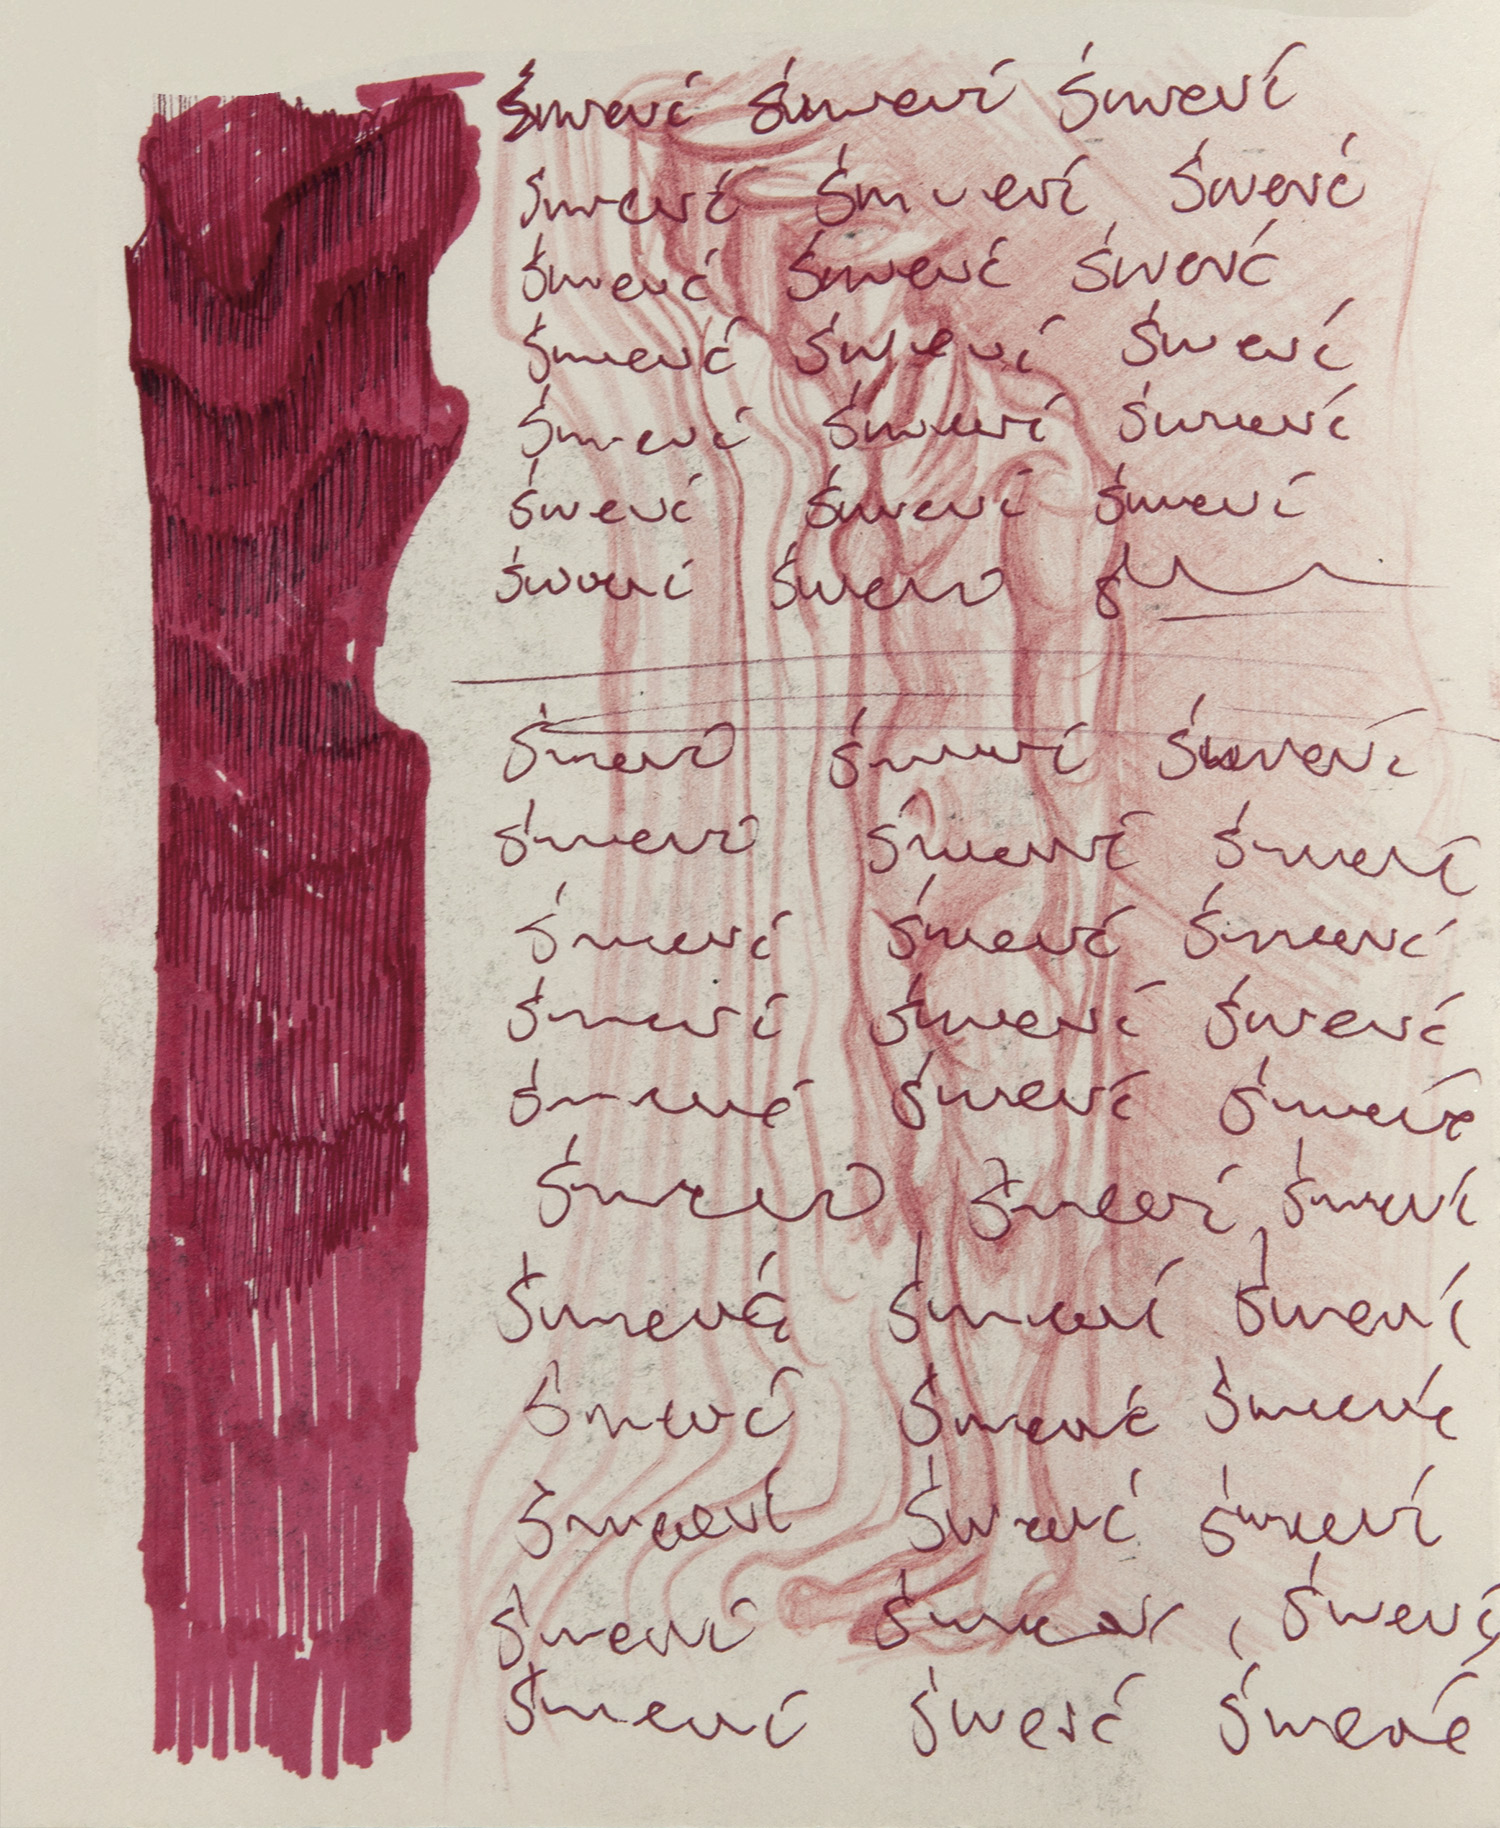 śmierć śmierć śmierć
śmierć śmierć śmierć
śmierć śmierć śmierć
śmierć śmierć śmierć
śmierć śmierć śmierć
śmierć śmierć śmierć
śmierć śmierć
śmierć śmierć śmierć
śmierć śmierć śmierć
śmierć śmierć śmierć
śmierć śmierć śmierć
śmierć śmierć śmierć
śmierć śmierć śmierć
śmierć śmierć śmierć
śmierć śmierć śmierć
śmierć śmierć śmierć
śmierć śmierć, śmierć
śmierć śmierć śmierć